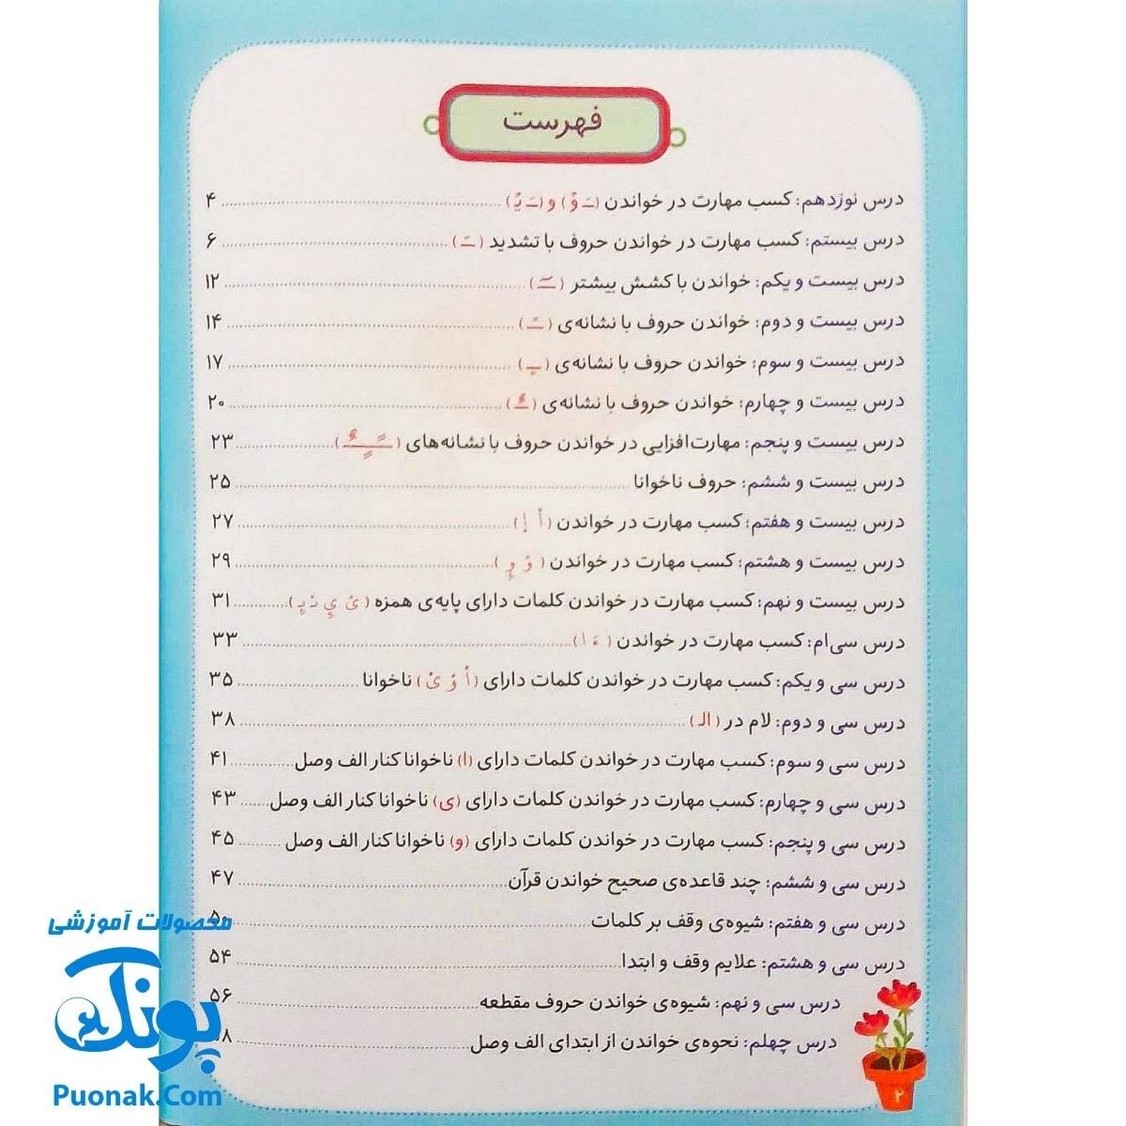 فهرست
درس نوزدهم: کسب مهارت در خواندن (ـَ وْ) و (ـَ یْ) ........ ۴
درس بیستم: کسب مهارت در خواندن حروف با تشدید (ـّ) ........ ۶
درس بیست و یکم: خواندن با کشش بیشتر (ـٓ) ........ ۱۲
درس بیست و دوم: خواندن حروف با نشانه‌ی (ـً) ........ ۱۴
درس بیست و سوم: خواندن حروف با نشانه‌ی (ـٍ) ........ ۱۷
درس بیست و چهارم: خواندن حروف با نشانه‌ی (ـٌ) ........ ۲۰
درس بیست و پنجم: مهارت‌افزایی در خواندن حروف با نشانه‌های (ـًـٍـٌ) ........ ۲۳
درس بیست و ششم: حروف ناخوانا ........ ۲۵
درس بیست و هفتم: کسب مهارت در خواندن (أ إ) ........ ۲۷
درس بیست و هشتم: کسب مهارت در خواندن ........ ۲۹
درس بیست و نهم: کسب مهارت در خواندن کلمات دارای پایه‌ی همزه ........ ۳۱
درس سی‌ام: کسب مهارت در خواندن ........ ۳۳
درس سی و یکم: کسب مهارت در خواندن کلمات دارای (أ ؤ ئ) ناخوانا ........ ۳۵
درس سی و دوم: لام در (الـ) ........ ۳۸
درس سی و سوم: کسب مهارت در خواندن کلمات دارای (ا) ناخوانا کنار الف وصل ........ ۴۱
درس سی و چهارم: کسب مهارت در خواندن کلمات دارای (ی) ناخوانا کنار الف وصل ........ ۴۳
درس سی و پنجم: کسب مهارت در خواندن کلمات دارای (و) ناخوانا کنار الف وصل ........ ۴۵
درس سی و ششم: چند قاعده‌ی صحیح خواندن قرآن ........ ۴۷
درس سی و هفتم: شیوه‌ی وقف بر کلمات ........
درس سی و هشتم: علایم وقف و ابتدا ........ ۵۴
درس سی و نهم: شیوه‌ی خواندن حروف مقطعه ........ ۵۶
درس چهلم: نحوه‌ی خواندن از ابتدای الف وصل ........
۲
محصولات آموزشی
پونک
Puonak.Com